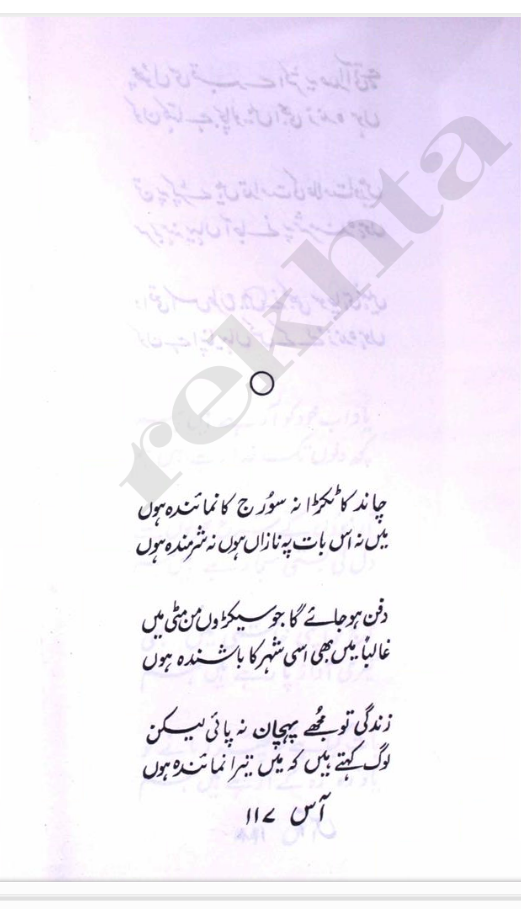 rekhta
چاند کا ٹکڑا نہ سورج کا نمائندہ ہوں
میں نہ اس بات پہ نازاں ہوں نہ شرمندہ ہوں
دفن ہو جائے گا جو سیکڑوں من مٹی میں
غالباً میں بھی اسی شہر کا باشندہ ہوں
زندگی تو مجھے پہچان نہ پائی لیکن
لوگ کہتے ہیں کہ میں تیرا نمائندہ ہوں
آس ۱۱۷